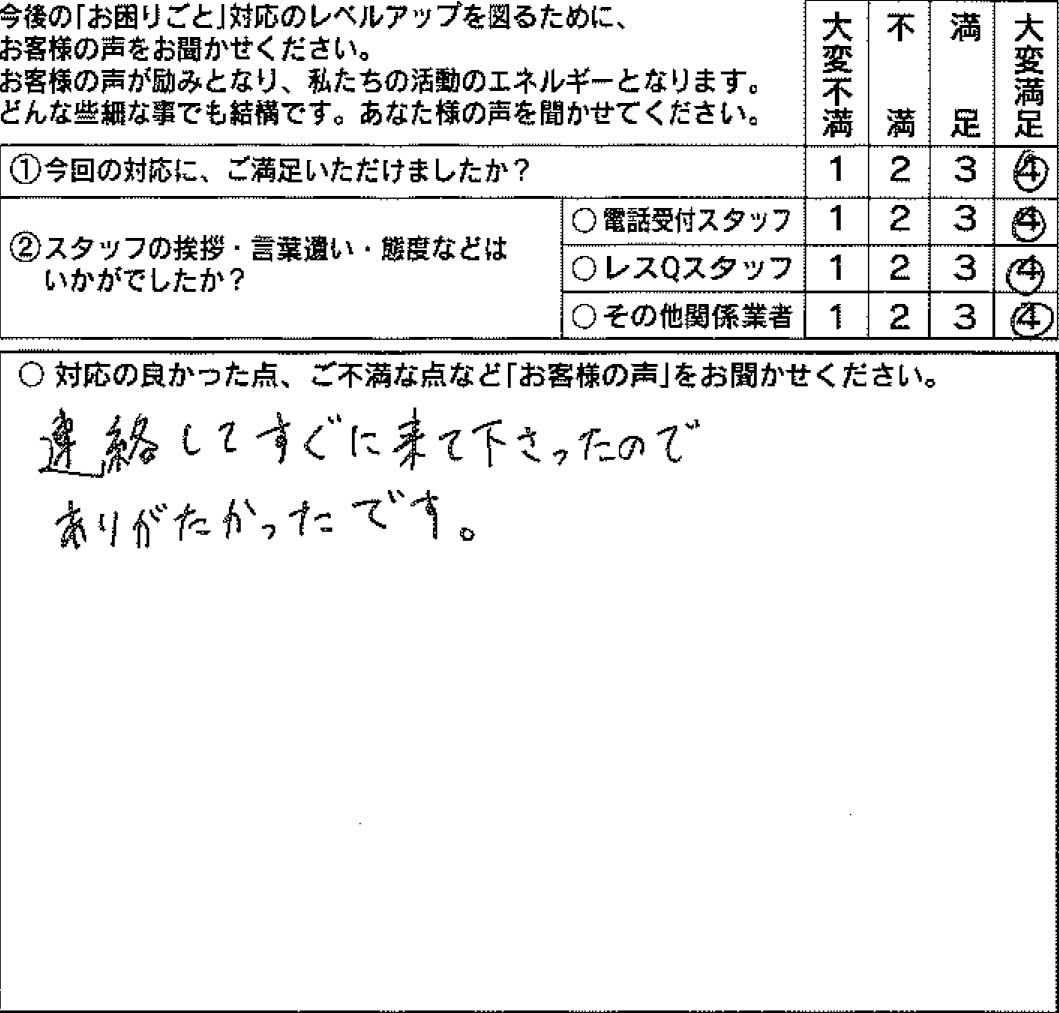 今後の「お困りごと」対応のレベルアップを図るために、
お客様の声をお聞かせください。
お客様の声が励みとなり、私たちの活動のエネルギーとなります。
どんな些細な事でも結構です。あなた様の声を聞かせてください。
大変不満 不満 満足 大変満足
①今回の対応に、ご満足いただけましたか？ 1 2 3 4
②スタッフの挨拶・言葉遣い・態度などは
いかがでしたか？
○電話受付スタッフ 1 2 3 4
○レスQスタッフ 1 2 3 4
○その他関係業者 1 2 3 4
○ 対応の良かった点、ご不満な点など「お客様の声」をお聞かせください。
連絡してすぐに来て下さったので
ありがたかったです。